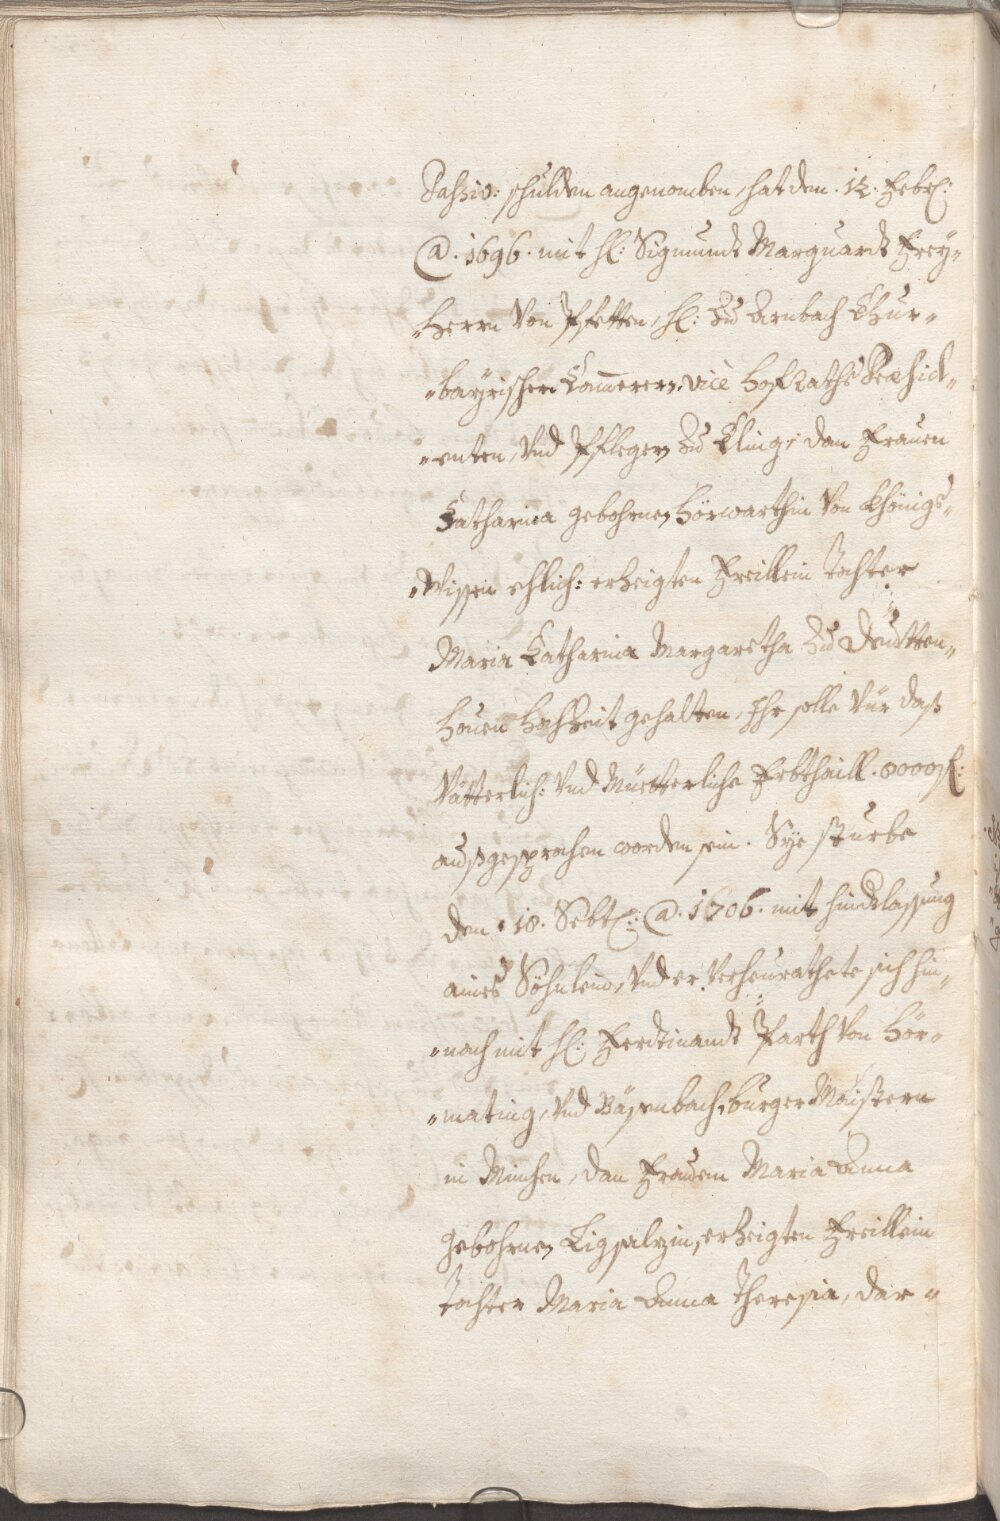 schulden angenomben, hat den .12. Febr:
Ao. 1696. mit H: Sigmundt Marquardt Frey„
„Herrn Von Pfetten, H: Zu Arnbach Chur„
„bayrischen Cammerern, vice Hof Raths Præsid„
„enten, Vnd Pflegern Zu Kling, dan Frauen
Catharina gebohrnen Hörwarthin Von Khönigs„
„Wissen ehlich: erzeigten Freillein Tochter
Maria Catharina Margaretha Zu Deutten„
houen Hochzeit gehalten, Ihr solle Vür daß
Vätterlich: Vnd Müetterliche Erbthaill .8000 fl:
außgesprochen worden sein. Sye sturbe
den .18. Sebt: Ao. 1706. mit hindlassung
aines Söhnleins, Vnd er Verheurathete sich hin„
„nach mit H: Ferdtinandt Parth Von Hör„
„mating, Vnd Päsenbach, burger Maistern
in München, dan Frauen Maria Anna
gebohrnen Ligsalzin, erzeigten Freillein
Tochter Maria Anna Theresia, dar„